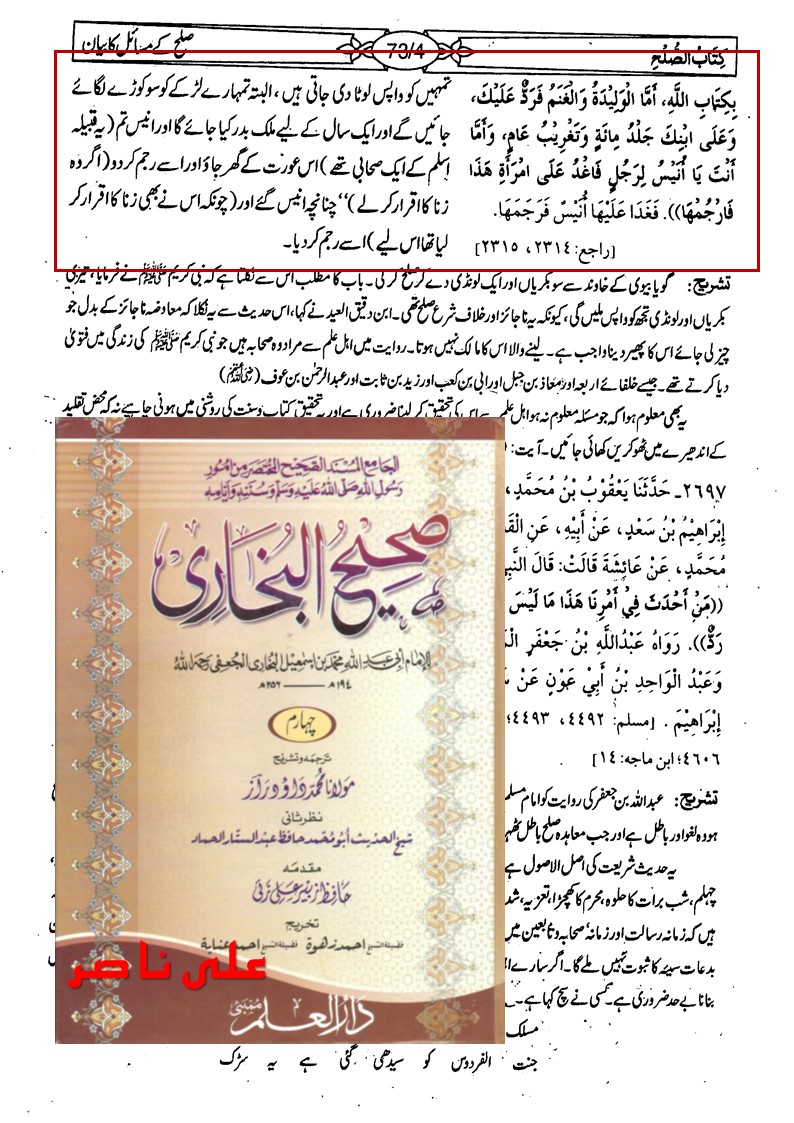 كِتَابُ الصُّلْحِ
73/4
صلح کے مسائل کا بیان
بِكِتَابِ اللَّهِ، أَمَّا الْوَلِيْدَةُ وَالْغَنَمُ فَرَدٌّ عَلَيْكَ،
وَعَلَى ابْنِكَ جَلْدُ مِائَةٍ وَتَغْرِيْبُ عَامٍ، وَأَمَّا
أَنْتَ يَا أُنَيْسُ لِرَجُلٍ فَاغْدُ عَلَى امْرَأَةِ هَذَا
فَارْجُمْهَا)). فَغَدَا عَلَيْهَا أُنَيْسٌ فَرَجَمَهَا.
[راجع: ٢٣١٤، ٢٣١٥]
تمہیں کو واپس لوٹا دی جاتی ہیں، البتہ تمہارے لڑکے کو سو کوڑے لگائے
جائیں گے اور ایک سال کے لیے ملک بدر کیا جائے گا اور انیس تم (یہ قبیلہ
اسلم کے ایک صحابی تھے) اس عورت کے گھر جاؤ اور اسے رجم کر دو (اگر وہ
زنا کا اقرار کر لے)‘‘ چنانچہ انیس گئے اور (چونکہ اس نے بھی زنا کا اقرار کر
لیا تھا اس لیے) اسے رجم کر دیا۔
تشریح: گویا بیوی کے خاوند سے سو بکریاں اور ایک لونڈی دے کر صلح کر لی۔ باب کا مطلب اس سے نکلتا ہے کہ نبی کریم ﷺ نے فرمایا، تیری
بکریاں اور لونڈی تجھ کو واپس ملیں گی، کیونکہ یہ ناجائز اور خلاف شرع صلح تھی۔ ابن دقیق العید نے کہا، اس حدیث سے یہ نکلا کہ معاوضہ ناجائز کے بدل جو
چیز لی جائے اس کا پھیر دینا واجب ہے۔ لینے والا اس کا مالک نہیں ہوتا۔ روایت میں اہل علم سے مراد وہ صحابہ ہیں جو نبی کریم ﷺ کی زندگی میں فتویٰ
دیا کرتے تھے۔ جیسے خلفائے اربعہ اور معاذ بن جبل اور ابی بن کعب اور زید بن ثابت اور عبدالرحمٰن بن عوف (رضی اللہ عنہم)
یہ بھی معلوم ہوا کہ جو مسئلہ معلوم نہ ہو اہل علم سے اس کی تحقیق کر لینا ضروری ہے اور یہ تحقیق کتاب و سنت کی روشنی میں ہونی چاہیے نہ کہ محض تقلید
کے اندھیرے میں ٹھوکریں کھائی جائیں۔ آیت:
٢٦٩٧۔ حَدَّثَنَا يَعْقُوْبُ بْنُ مُحَمَّدٍ،
إِبْرَاهِيْمُ بْنُ سَعْدٍ، عَنْ أَبِيْهِ، عَنِ
مُحَمَّدٍ، عَنْ عَائِشَةَ قَالَتْ: قَالَ
((مَنْ أَحْدَثَ فِيْ أَمْرِنَا هَذَا مَا لَيْسَ
رَدٌّ)). رَوَاهُ عَبْدُاللَّهِ بْنُ جَعْفَرٍ
وَعَبْدُ الْوَاحِدِ بْنُ أَبِيْ عَوْنٍ عَنْ
إِبْرَاهِيْمَ. [مسلم: ٤٤٩٢، ٤٤٩٣؛
٤٦٠٦؛ ابن ماجه: ١٤]
تشریح: عبداللہ بن جعفر کی روایت کو امام مسلم
ہو وہ لغو اور باطل ہے اور جب معاہدہ صلح باطل
یہ حدیث شریعت کی اصل الاصول ہے
چہلم، شب برات کا حلوہ، محرم کا کھچڑا، تعزیہ،
ہیں کہ زمانہ رسالت اور زمانہ صحابہ و تابعین میں
بدعات سیئہ کا ثبوت نہیں ملے گا۔ اگر سارے
بنانا بے حد ضروری ہے۔ کسی نے سچ کہا ہے۔
مسلک
جنت الفردوس کو سیدھی گئی ہے یہ سڑک
الجامع المسند الصحيح المختصر من امور
رسول الله صلى الله عليه وسلم وسننه وايامه
صحيح البخاری
للإمام أبي عبد الله محمد بن اسمعيل البخاري الجعفي رحمه الله
١٩٤هـ ——— ٢٥٦هـ
چہارم
ترجمہ و تشریح
مولانا محمد داؤد راز
نظر ثانی
شیخ الحدیث ابو محمد حافظ عبدالستار الحماد
مقدمہ
حافظ زبیر علی زئی
تخریج
فضیلۃ الشیخ احمد زهوة فضیلۃ الشیخ احمد عناية
علی ناصر
دار العلم ممبئی